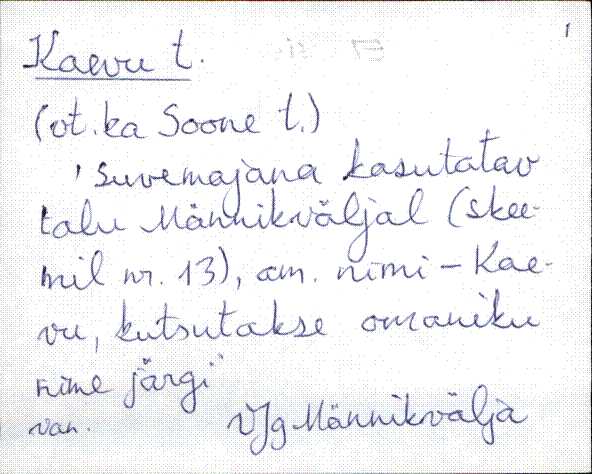 1
Kaevu t.
(vt. ka Soone t.)
'suvemajana kasutatav
talu Männikväljal (skee-
mil nr. 13), am. nimi – Kae-
vu, kutsutakse omaniku
nime järgi"
van. Vjg Männikvälja